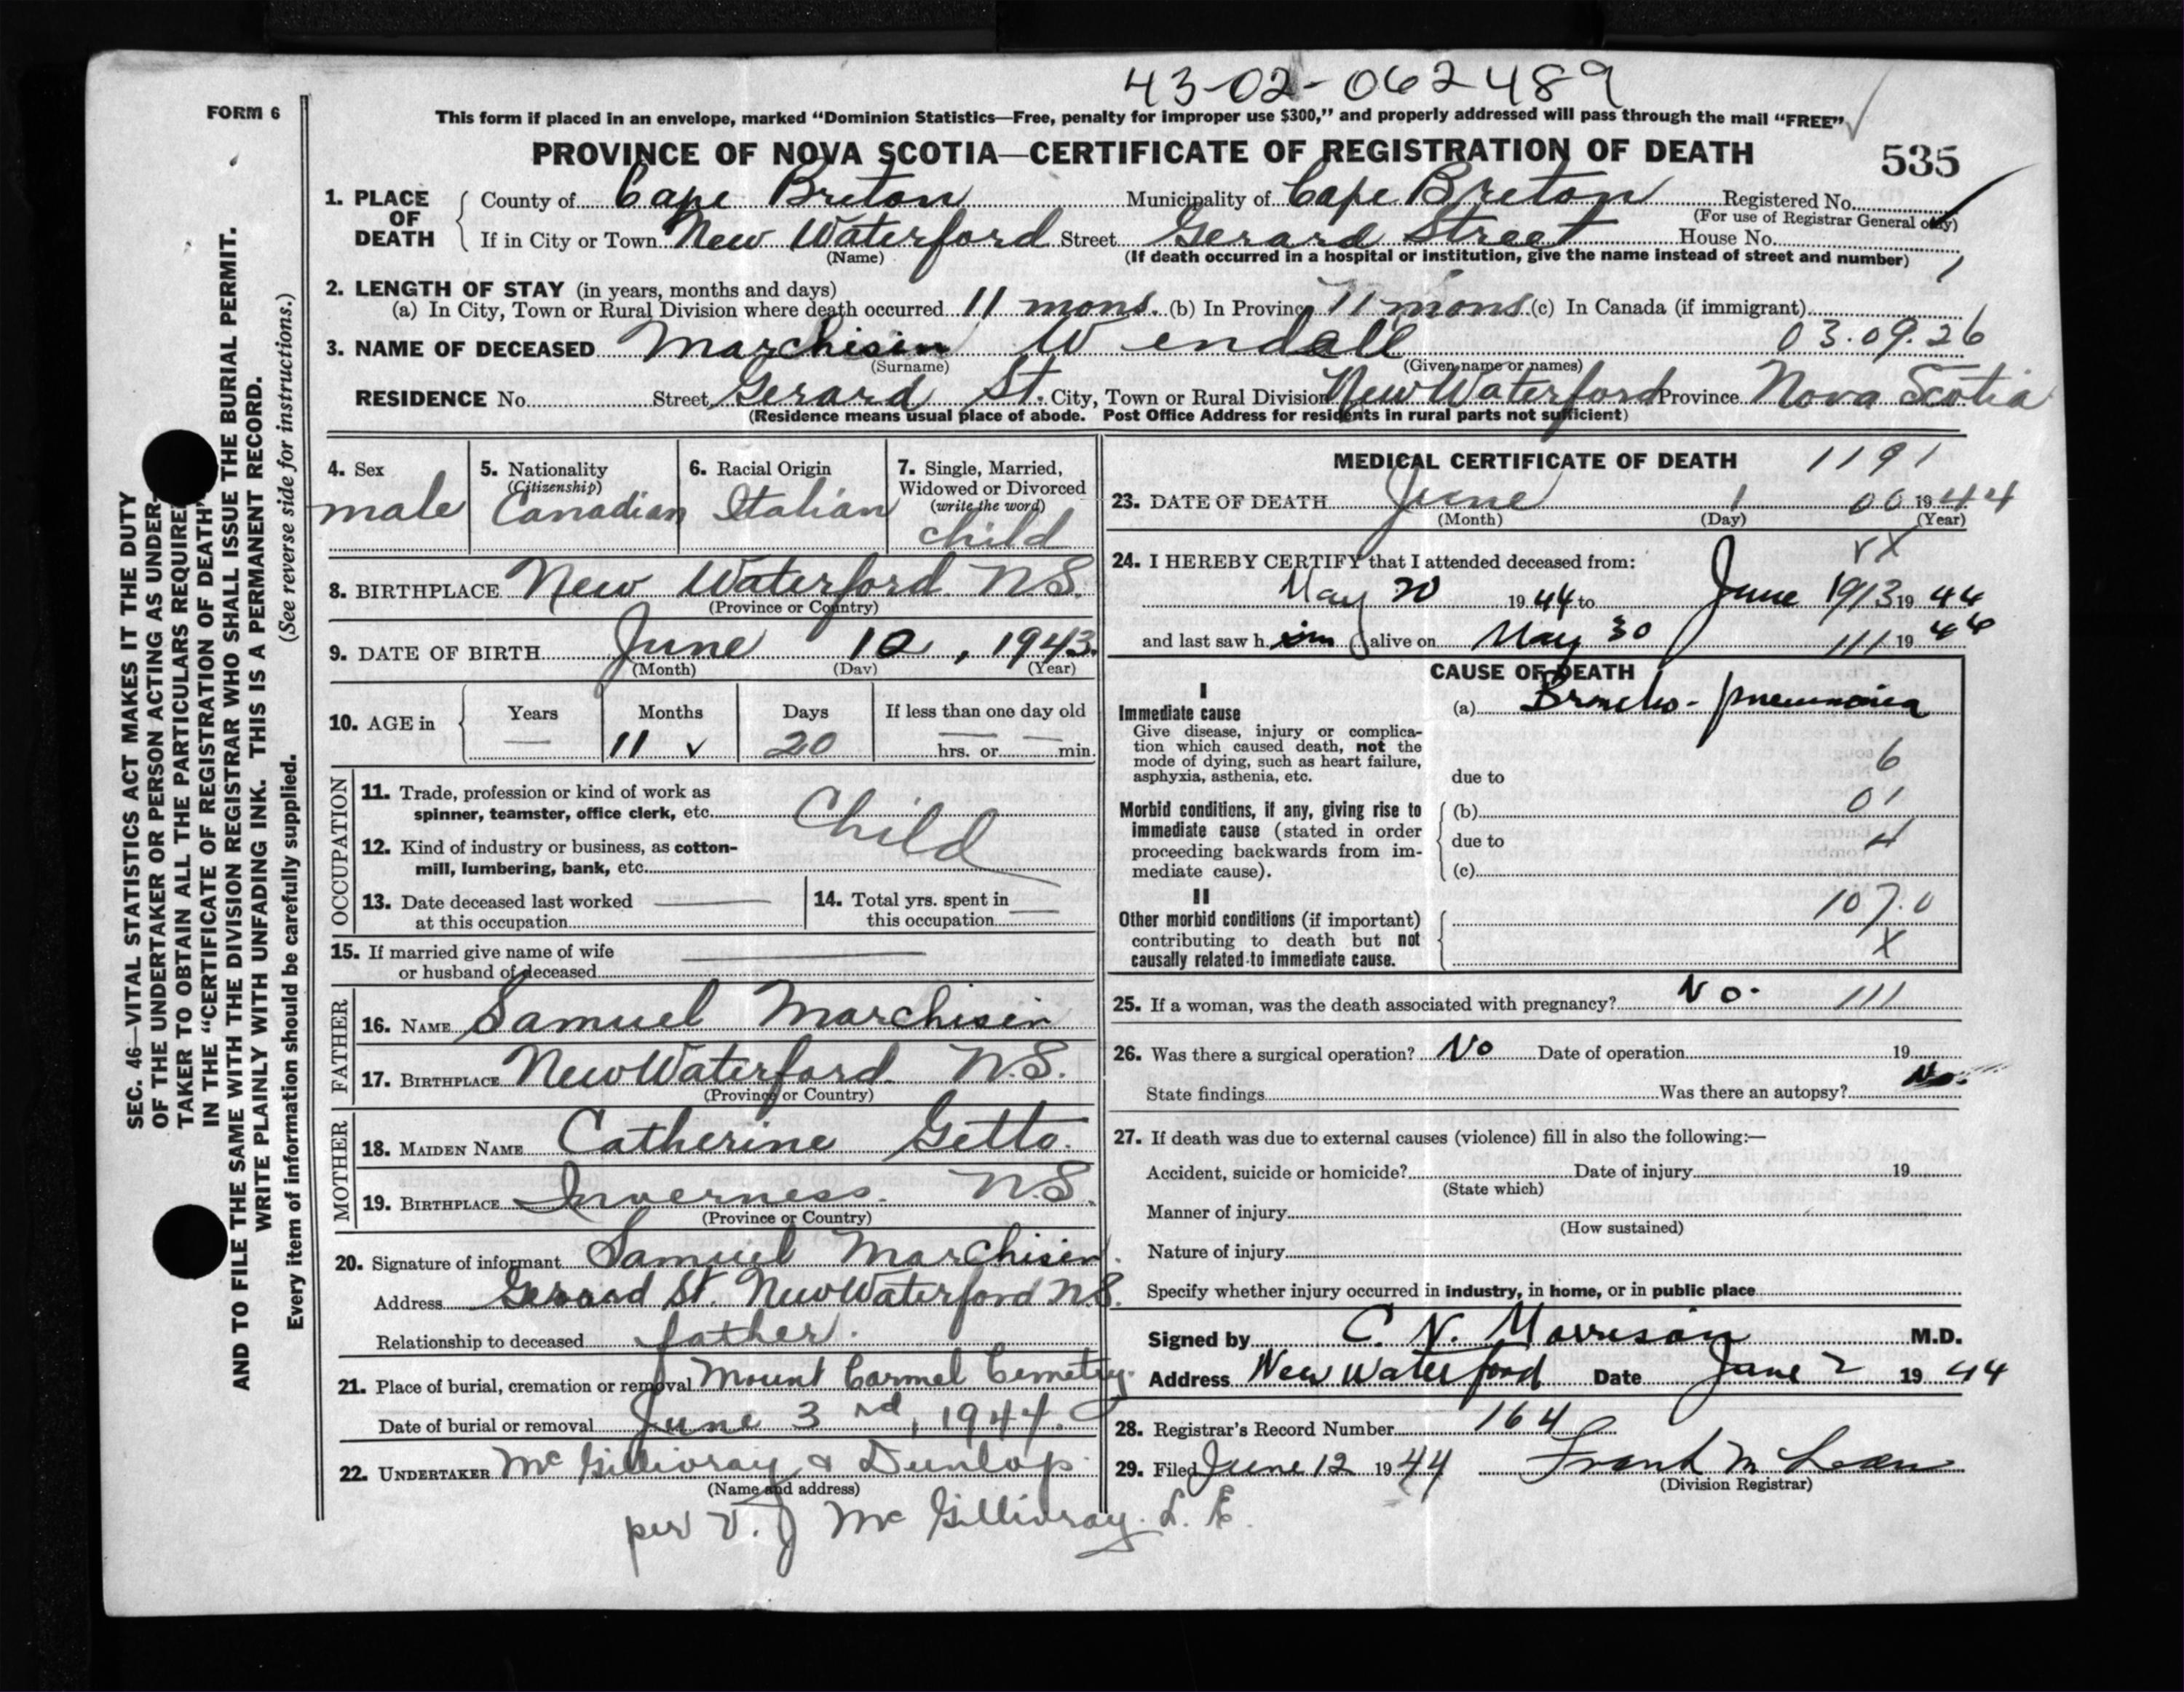 43-02-062489
FORM 6
This form if placed in an envelope, marked "Dominion Statistics—Free, penalty for improper use $300," and properly addressed will pass through the mail "FREE"
PROVINCE OF NOVA SCOTIA—CERTIFICATE OF REGISTRATION OF DEATH 535
1. PLACE OF DEATH County of Cape Breton Municipality of Cape Breton Registered No.
(For use of Registrar General only)
If in City or Town New Waterford Street Gerard Street House No.
(Name) (If death occurred in a hospital or institution, give the name instead of street and number)
2. LENGTH OF STAY (in years, months and days)
(a) In City, Town or Rural Division where death occurred 11 mons. (b) In Province 11 mons. (c) In Canada (if immigrant)
3. NAME OF DECEASED Marchisin Wendall 03.09.26
(Surname) (Given name or names)
RESIDENCE No. Street Gerard St. City, Town or Rural Division New Waterford Province Nova Scotia
(Residence means usual place of abode. Post Office Address for residents in rural parts not sufficient)
4. Sex male
5. Nationality (Citizenship) Canadian
6. Racial Origin Italian
7. Single, Married, Widowed or Divorced (write the word) child
8. BIRTHPLACE New Waterford N.S.
(Province or Country)
9. DATE OF BIRTH June 12, 1943.
(Month) (Day) (Year)
10. AGE in Years — Months 11 Days 20 If less than one day old — hrs. or — min.
OCCUPATION
11. Trade, profession or kind of work as spinner, teamster, office clerk, etc. Child
12. Kind of industry or business, as cotton-mill, lumbering, bank, etc.
13. Date deceased last worked at this occupation —
14. Total yrs. spent in this occupation —
15. If married give name of wife or husband of deceased —
FATHER
16. NAME Samuel Marchisin
17. BIRTHPLACE New Waterford. N.S.
(Province or Country)
MOTHER
18. MAIDEN NAME Catherine Getto.
19. BIRTHPLACE Inverness. N.S.
(Province or Country)
20. Signature of informant Samuel Marchisin.
Address Gerard St. New Waterford N.S.
Relationship to deceased father.
21. Place of burial, cremation or removal Mount Carmel Cemetry.
Date of burial or removal June 3rd, 1944.
22. UNDERTAKER McGillivray & Dunlop.
(Name and address)
per V. J McGillivray. L. E.
MEDICAL CERTIFICATE OF DEATH 1191
23. DATE OF DEATH June 1 00 1944
(Month) (Day) (Year)
24. I HEREBY CERTIFY that I attended deceased from:
May 20 1944 to June 1944
and last saw him alive on May 30 111 1944
CAUSE OF DEATH
I
Immediate cause
Give disease, injury or complication which caused death, not the mode of dying, such as heart failure, asphyxia, asthenia, etc.
(a) Broncho-pneumonia
6
due to
Morbid conditions, if any, giving rise to immediate cause (stated in order proceeding backwards from immediate cause).
(b) 01
due to 4
(c)
II
Other morbid conditions (if important) contributing to death but not causally related to immediate cause.
107.0
X
25. If a woman, was the death associated with pregnancy? No. 111
26. Was there a surgical operation? No Date of operation 19
State findings Was there an autopsy? No.
27. If death was due to external causes (violence) fill in also the following:—
Accident, suicide or homicide? Date of injury 19
(State which)
Manner of injury
(How sustained)
Nature of injury
Specify whether injury occurred in industry, in home, or in public place
Signed by C. N. Morrison M.D.
Address New Waterford Date June 2 1944
28. Registrar's Record Number 164
29. Filed June 12 1944 Frank McLean
(Division Registrar)
SEC. 46—VITAL STATISTICS ACT MAKES IT THE DUTY
OF THE UNDERTAKER OR PERSON ACTING AS UNDER-
TAKER TO OBTAIN ALL THE PARTICULARS REQUIRED
IN THE "CERTIFICATE OF REGISTRATION OF DEATH"
AND TO FILE THE SAME WITH THE DIVISION REGISTRAR WHO SHALL ISSUE THE BURIAL PERMIT.
WRITE PLAINLY WITH UNFADING INK. THIS IS A PERMANENT RECORD.
Every item of information should be carefully supplied. (See reverse side for instructions.)